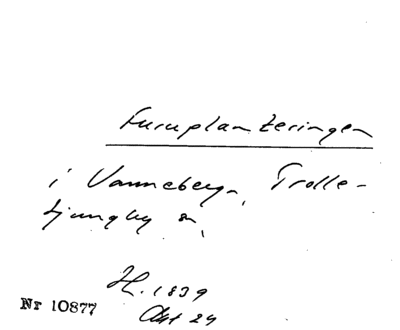 Furuplanteringen
i Vanneberga, Trolle-
ljungby sn,
H. 1839
Akt 29
Nr 10877